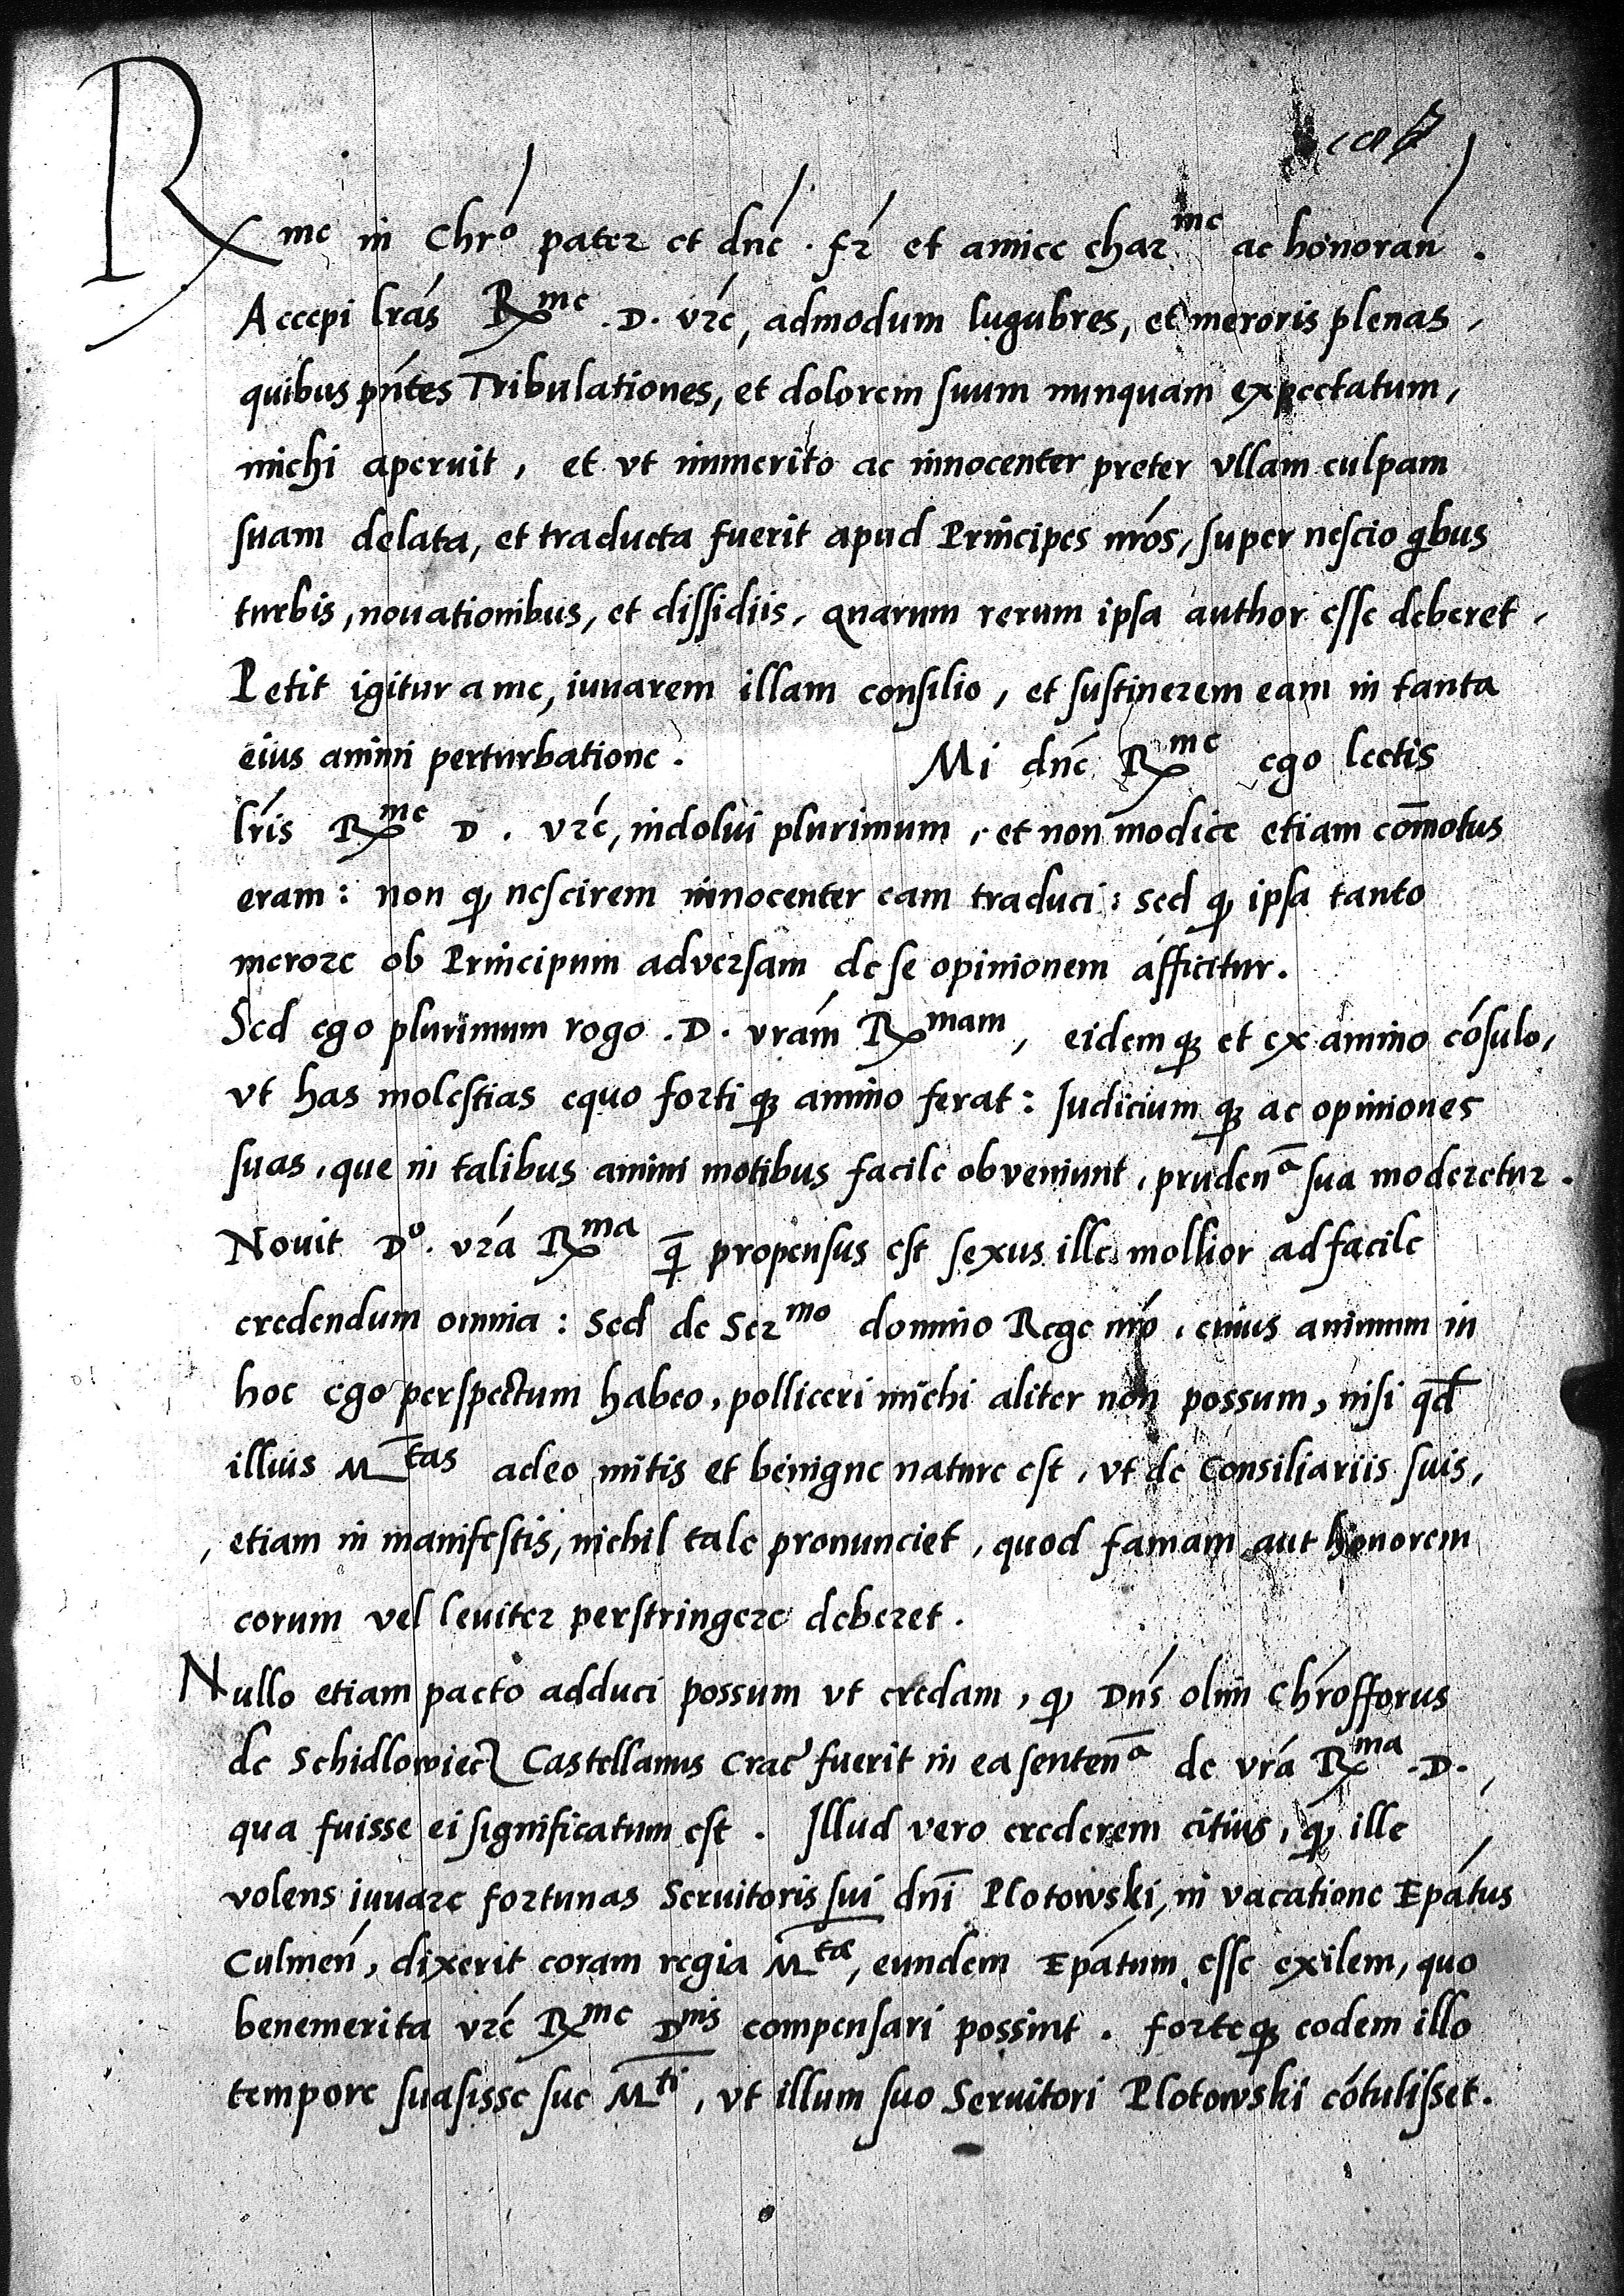 Rx^me in Chr̃o pater et dn̄e . fr̃ et amice char^me ac honoran̄ .
Accepi lr̃as Rx^me .D. vr̃e, admodum lugubres, et meroris plenas,
quibus pn̄tes Tribulationes, et dolorem suum nunquam expectatum,
michi aperuit, et vt immerito ac innocenter preter vllam culpam
suam delata, et traducta fuerit apud Principes nr̃os, super nescio qbus
turbis, nouationibus, et dissidiis, quarum rerum ipsa author esse deberet.
Petit igitur a me, iuuarem illam consilio, et sustinerem eam in tanta
eius animi perturbatione. Mi dn̄e Rx^me ego lectis
lr̃is Rx^me D . vr̃e, indolui plurimum, et non modice etiam com̄otus
eram: non ꝙ nescirem innocenter eam traduci: sed ꝙ ipsa tanto
merore ob Principum adversam de se opinionem afficitur.
Sed ego plurimum rogo .D. vr̃am Rx^mam, eidemqꝫ et ex animo cōsulo,
vt has molestias equo fortiqꝫ animo ferat: Judiciumqꝫ ac opiniones
suas, que in talibus animi motibus facile obveniunt, pruden^a sua moderetur.
Novit D^o. vr̃a Rx^ma q̄ propensus est sexus ille mollior ad facile
credendum omnia: Sed de Ser^mo domino Rege nr̃o, cuius animum in
hoc ego perspectum habeo, polliceri michi aliter non possum, nisi qđ
illius M^tas adeo mitis et benigne nature est, vt de Consiliariis suis,
etiam in manifestis, nichil tale pronunciet, quod famam aut honorem
eorum vel leuiter perstringere deberet.
Nullo etiam pacto adduci possum vt credam, ꝙ Dn̄s olim Chr̃offorus
de Schidlowiecz Castellanus Crac̃ fuerit in ea senten^a de vr̃a Rx^ma .D.,
qua fuisse ei significatum est. Illud vero crederem citius, ꝙ ille
volens iuuare fortunas Seruitoris sui dn̄i Plotowski, in vacatione Ep̃atus
Culmen̄, dixerit coram regia M^ta, eundem Ep̃atum esse exilem, quo
benemerita vr̃e Rx^me D^nis compensari possint. forteqꝫ eodem illo
tempore suasisse sue M^ti, vt illum suo Seruitori Plotowski cōtulisset.